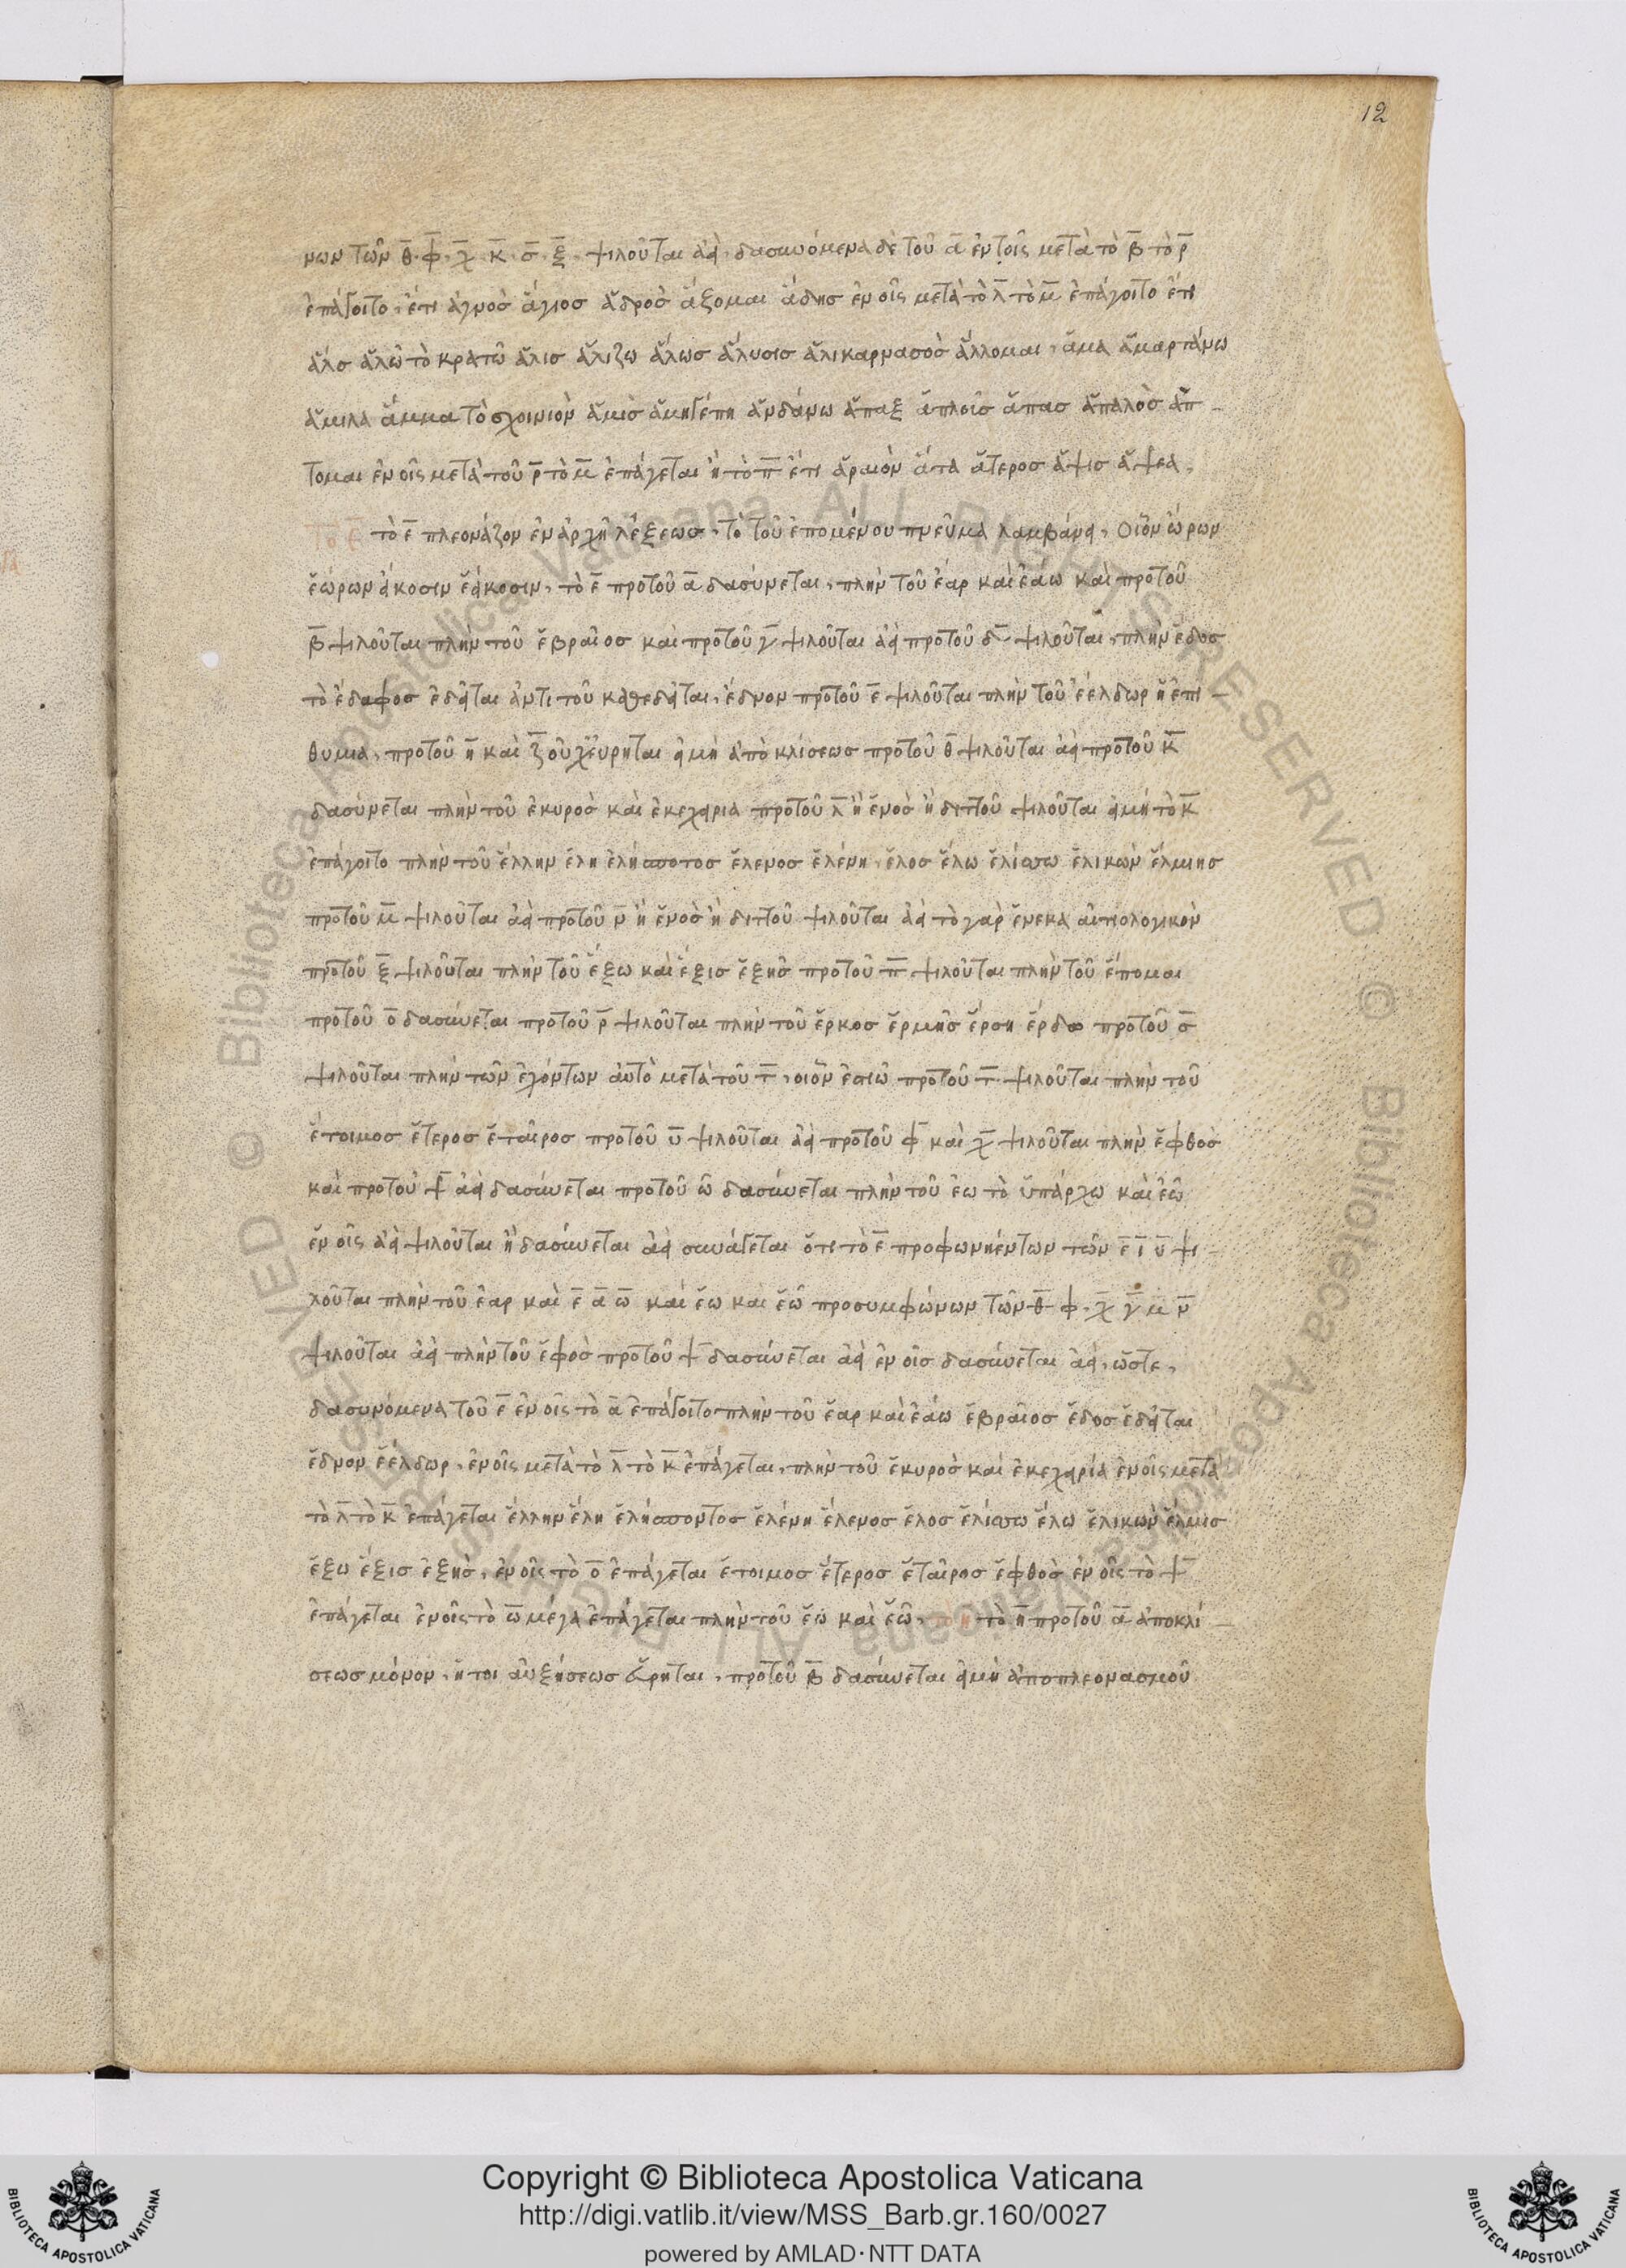 12
νων τῶν θ̅· φ̅· χ̅· κ̅· σ̅· ξ̅· ψιλοῦται ἀεὶ· δασυνόμενα δὲ τοῦ α̅ ἐν τοῖς μετὰ τὸ β̅ τὸ ρ̅
ἐπάγοιτο· ἔτι ἁγνὸσ ἅγιοσ ἁδροσ ἅξομαι ἅδησ ἐν οἷς μετὰ τὸ λ̅ τὸ μ̅ ἐπάγοιτο ἔτι
ἅλσ ἁλῶ τὸ κρατῶ ἅλισ ἁλιζω ἅλωσ ἅλυσισ ἁλικαρνασοὸσ ἅλλομαι· ἅμα ἁμαρτάνω
ἅμιλα ἅμμα τὸ σχοινιὸν ἁμὶσ ἁμηγέπη ἁνδάνω ἅπαξ ἁπλοῖσ ἅπασ ἁπαλὸσ ἅπ
τομαι ἐν οἷς μετὰ τοῦ ρ̅ τὸ μ̅ ἐπάγεται ἢ τὸ π̅ ἔτι ἁραιὸν ἅτα ἅτεροσ ἅψισ ἅψεα·
Το ε̅ τὸ ε̅ πλεονάζον ἐν ἀρχῆ λέξεωσ· τὸ τοῦ ἑπομένου πνεῦμα λαμβάνει· οἷον ὥρων
ἑώρων εἴκοσιν ἐείκοσιν· τὸ ε̅ προτοῦ α̅ δασύνεται· πλὴν τοῦ ἔαρ καὶ ἐάω καὶ προτοῦ
β̅ ψιλοῦται πλὴν τοῦ ἑβραῖοσ καὶ προτοῦ γ̅ ψιλοῦται ἀεὶ προτοῦ δ̅ ψιλοῦται· πλὴν ἕδοσ
τὸ ἔδαφοσ ἑδεῖται ἀντι τοῦ καθεδεῖται· ἕδνον προτοῦ ε̅ ψιλοῦται πλὴν τοῦ ἐέλδωρ ἡ ἐπι
θυμια· προτοῦ η̅ καὶ ζ̅ οὐχ εὕρηται εἰμὴ ἀπὸ κλίσεωσ προτοῦ θ̅ ψιλοῦται ἀεὶ προτοῦ κ̅
δασύνεται πλὴν τοῦ ἐκυροσ καὶ ἐκεχειρια προτοῦ λ̅ ἢ ἑνοσ ἢ διττοῦ ψιλοῦται εἰμὴ τὸ κ̅
ἐπάγοιτο πλὴν τοῦ ἕλλην ἕλη ἑλήσποντοσ ἕλενοσ ἑλένη· ἕλοσ ἕλω ἑλίσσω ἑλικων ἕλμινσ
προτοῦ μ̅ ψιλοῦται ἀεὶ προτοῦ ν̅ ἢ ἑνοσ ἢ διττοῦ ψιλοῦται ἀεὶ τὸ γαρ ἕνεκα αἰτιολογικὸν
προτοῦ ξ̅ ψιλοῦται πλὴν τοῦ ἕξω καὶ ἕξισ ἑξῆσ προτοῦ π̅ ψιλοῦται πλὴν τοῦ ἕπομαι
προτοῦ ο̅ δασύνεται προτοῦ ρ̅ ψιλοῦται πλὴν τοῦ ἕρκοσ ἑρμῆσ ἕρση ἕρδω προτοῦ σ̅
ψιλοῦται πλὴν τῶν ἐχόντων αὐτὸ μετὰ τοῦ τ̅· οἷον ἑστιῶ προτοῦ τ̅ ψιλοῦται πλὴν τοῦ
ἕτοιμοσ ἕτεροσ ἑταῖροσ προτοῦ υ̅ ψιλοῦται ἀεὶ προτοῦ φ̅ καὶ χ̅ ψιλοῦται πλὴν ἑφθὸσ
καὶ προτοῦ ψ̅ ἀεὶ δασύνεται προτοῦ ω̅ δασύνεται πλὴν τοῦ ἔω τὸ ὑπάρχω καὶ ἐῶ
ἐν οἷς ἀεὶ ψιλοῦται ἢ δασύνεται ἀεὶ συνάγεται ὅτι τὸ ε̅ προφωνηέντων τῶν ε̅ ι̅ υ̅ ψι
λοῦται πλὴν τοῦ ἔαρ καὶ ε̅ α̅ ω̅ καὶ ἔω και ἐῶ προσυμφώνων τῶν θ̅ φ̅· χ̅ γ̅ μ̅ ν̅
ψιλοῦται ἀεὶ πλὴν τοῦ ἑφοσ προτοῦ ψ̅ δασύνεται ἀεὶ ἐν οἷσ δασύνεται ἀεὶ· ὥστε·
δασυνόμενα τοῦ ε̅ ἐν οἷς τὸ α̅ ἐπάγοιτο πλὴν τοῦ ἔαρ καὶ ἐάω ἑβραῖοσ ἕδοσ ἑδεῖται
ἕδνον ἐέλδωρ· ἐν οἷς μετὰ τὸ λ̅ τὸ κ̅ ἐπάγεται· πλὴν τοῦ ἑκυροσ καὶ ἐκεχειρία ἐν οἷς μετὰ
τὸ λ̅ τὸ κ̅ ἐπάγεται ἕλλην ἕλη ἑλήσποντοσ ἑλένη ἕλενοσ ἕλοσ ἑλίσσω ἕλω ἑλικων ἕλμισ
ἕξω ἕξισ ἑξῆσ· ἐν οἷς τὸ ο̅ ἐπάγεται ἕτοιμοσ ἕτεροσ ἑταῖροσ ἑφθὸσ ἐν οἷς τὸ ψ̅
ἐπάγεται ἐν οἷς τὸ ω̅ μέγα ἐπάγεται πλὴν τοῦ ἔω καὶ ἐῶ· το η τὸ η̅ προτοῦ α̅ ἀποκλί
σεωσ μόνον· ἤτοι αὐξήσεωσ εὕρηται· προτοῦ β̅ δασύνεται εἰμὴ ἀποπλεονασμοῦ
Copyright © Biblioteca Apostolica Vaticana
http://digi.vatlib.it/view/MSS_Barb.gr.160/0027
powered by AMLAD·NTT DATA